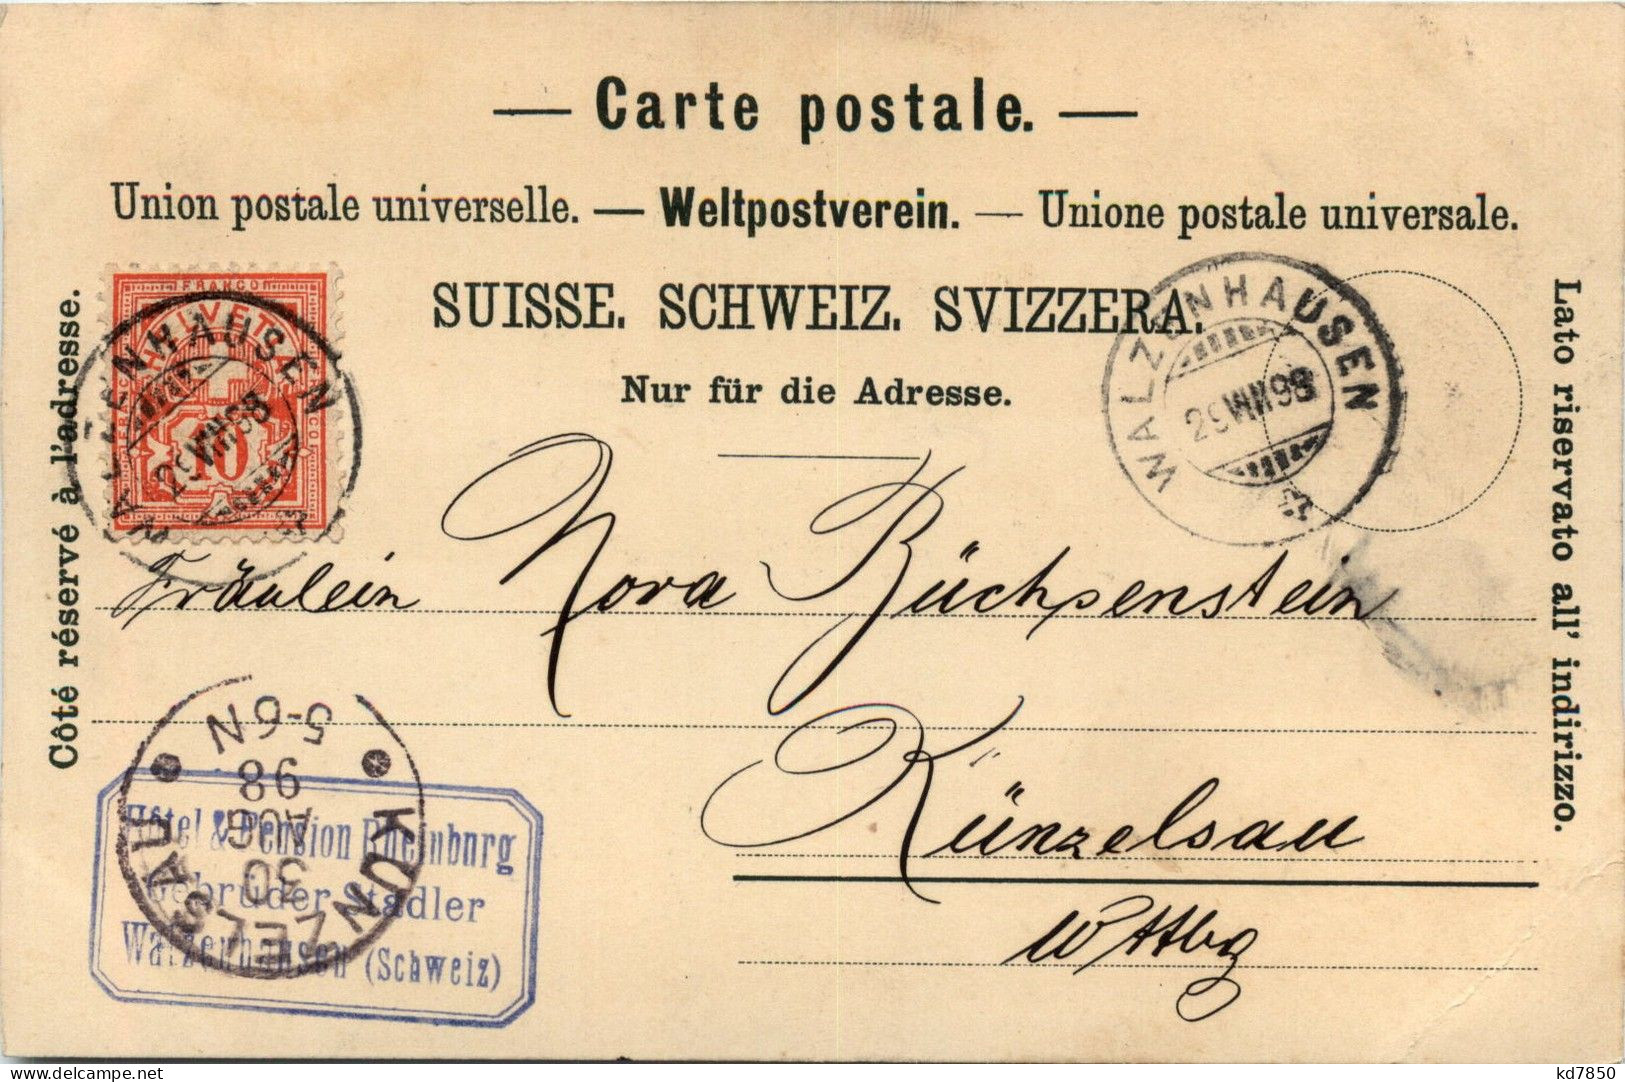 — Carte postale. —
Union postale universelle. — Weltpostverein. — Unione postale universale.
SUISSE. SCHWEIZ. SVIZZERA.
Nur für die Adresse.
Côté réservé à l'adresse.
Lato riservato all' indirizzo.
FRANCO
HELVETIA
10
WALZENHAUSEN
29 VIII 98
WALZENHAUSEN
29 VIII 98
Fräulein Nora Büchsenstein
Künzelsau
Wttbg
KÜNZELSAU
30
AUG
98
5-6N
Hôtel & Pension Rheinburg
Gebrüder Stadler
Walzenhausen (Schweiz)
delcampe.net
kd7850